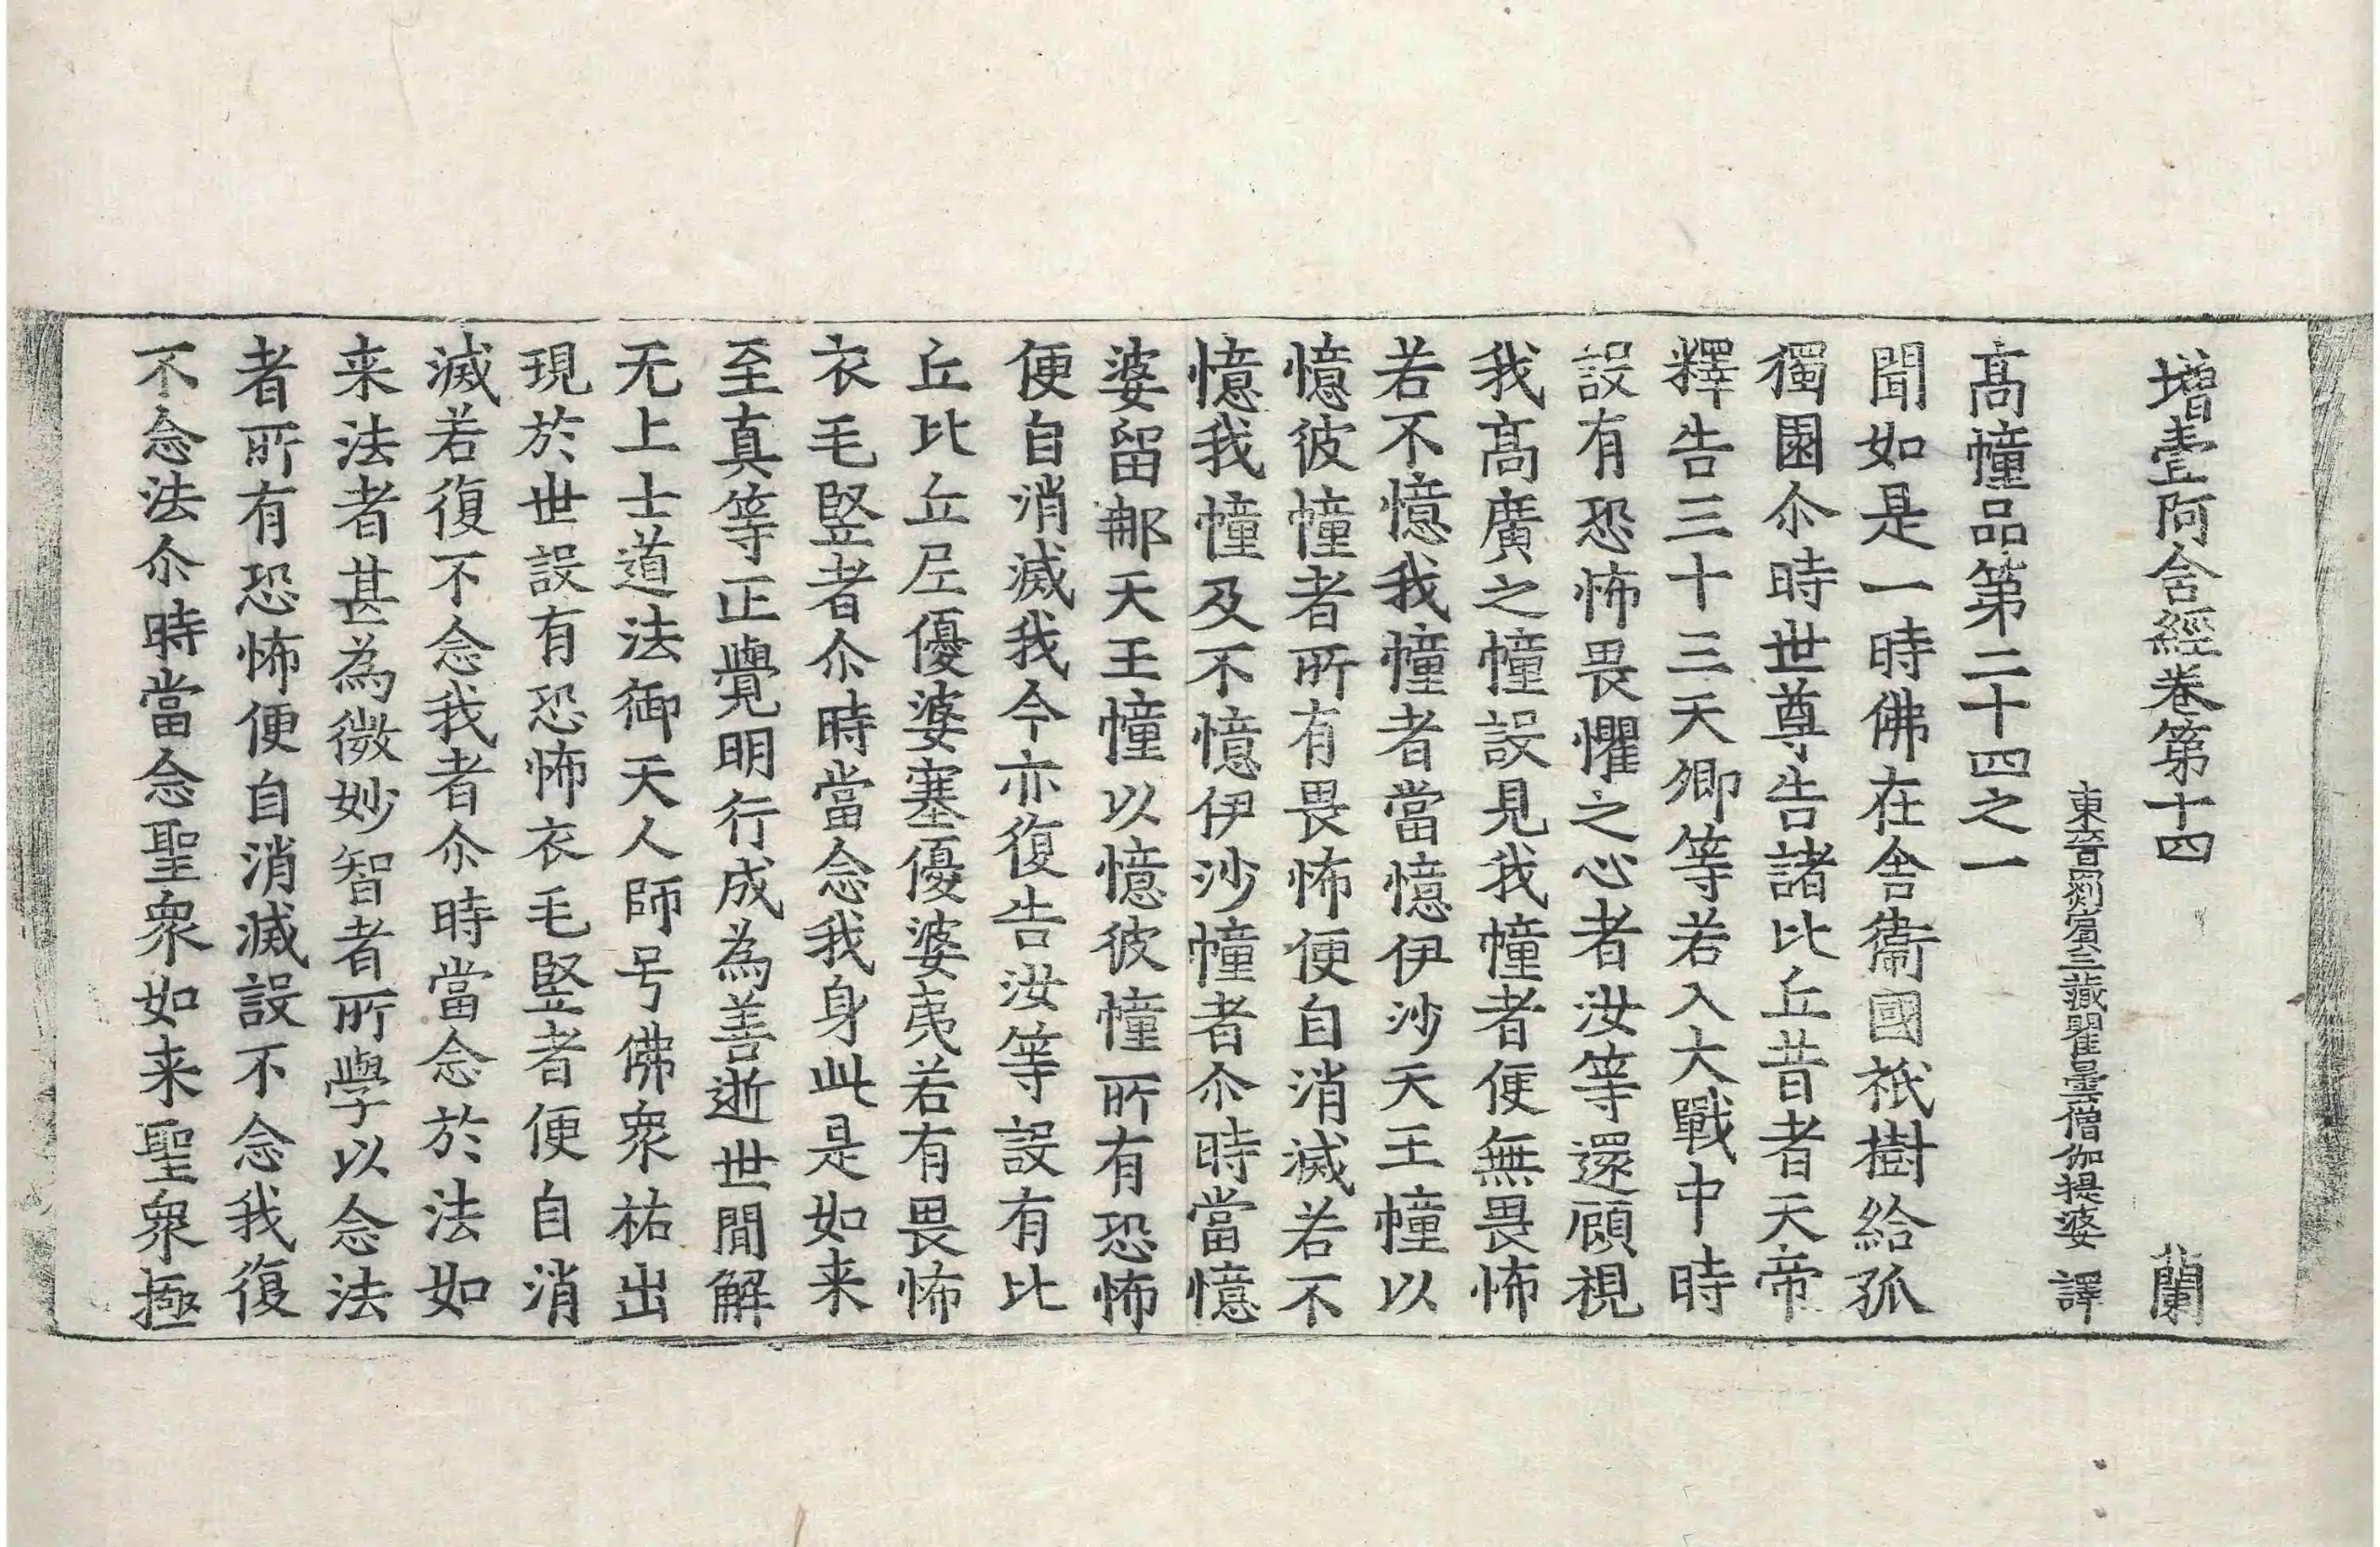 增壹阿含經卷第十四 蘭
東晉罽賓三藏瞿曇僧伽提婆 譯
髙幢品第二十四之一
聞如是一時佛在舍衞國祇樹給孤
獨園尒時世尊告諸比丘昔者天帝
釋告三十三天卿等若入大戰中時
設有恐怖畏懼之心者汝等還顧視
我髙廣之幢設見我幢者便無畏怖
若不憶我幢者當憶伊沙天王幢以
憶彼幢者所有畏怖便自消滅若不
憶我幢及不憶伊沙幢者尒時當憶
婆留那天王幢以憶彼幢所有恐怖
便自消滅我今亦復告汝等設有比
丘比丘尼優婆塞優婆夷若有畏怖
衣毛竪者尒時當念我身此是如来
至真等正覺明行成為善逝世間解
无上士道法御天人師号佛衆祐出
現於世設有恐怖衣毛竪者便自消
滅若復不念我者尒時當念於法如
来法者甚為微妙智者所學以念法
者所有恐怖便自消滅設不念我復
不念法尒時當念聖衆如来聖衆極